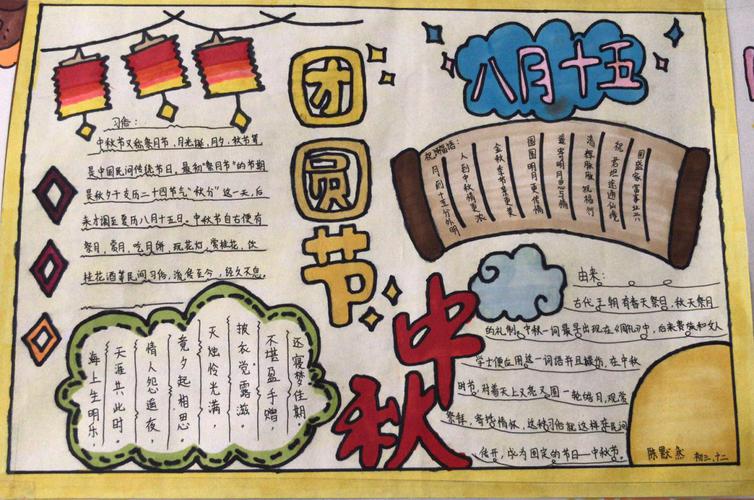 团圆节
八月十五
中秋
习俗:
中秋节又称祭月节,月光诞,月夕,秋节等
是中国民间传统节日,最初"祭月节"的节期
是秋夕干支历二十四节气"秋分"这一天,后
来才调至夏历八月十五日。中秋节自古便有
祭月,赏月,吃月饼,玩花灯,赏桂花,饮
桂花酒等民间习俗,流传至今,经久不息。
海上生明乐,
天涯共此时。
情人怨遥夜,
竟夕起相思
灭烛怜光满,
披衣觉露滋。
不堪盈手赠,
还寝梦佳期。
祝福语:
月到十五分外明
人到中秋情更浓
金秋季节景更美
圆圆明月更传情
最寄明月思与情
清辉脉脉祝福行
祝君坦途通仙境
国盛家富事业兴
由来:
古代王朝有春天祭日,秋天祭月
的礼制,中秋一词最早出现在《周礼》中,后来贵族和文人
学士便应用这一词语并且模仿,在中秋
时节,对着天上又亮又圆一轮皓月,观赏
祭拜,寄托情怀,这种习俗就这样在民间
传开,成为固定的节日—中秋节。
陈默然 初三.十二